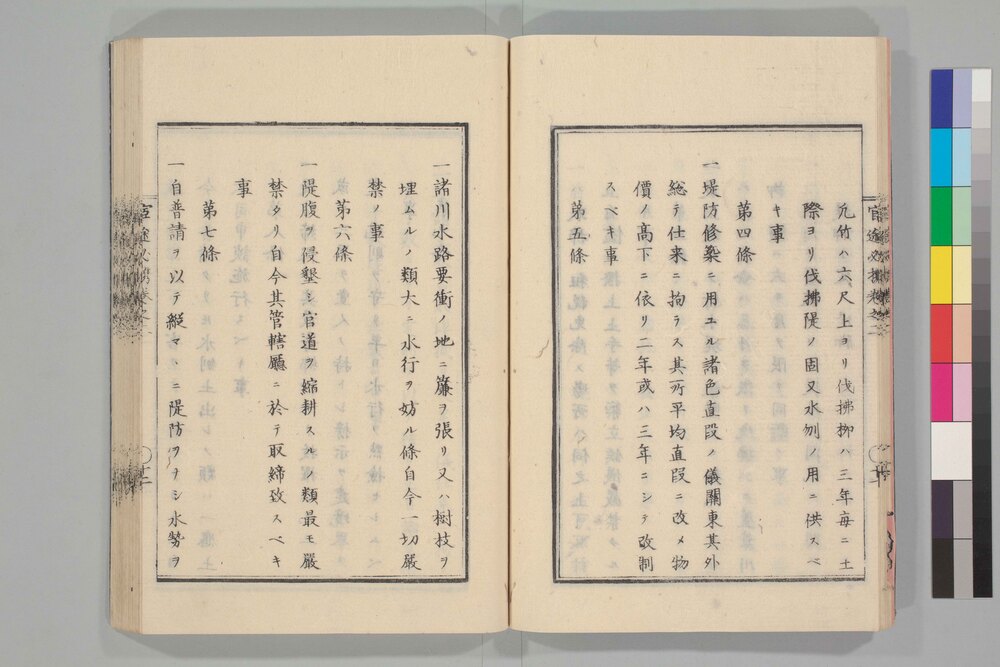 元竹ハ六尺上ヨリ伐拂柳ハ三年毎ニ土
際ヨリ伐拂隄ノ固又水刎ノ用ニ供スベ
キ事
第四條
一堤防修築ニ用ユル諸色直段ノ儀關東其外
総テ仕来ニ拘ラス其所平均直段ニ改メ物
價ノ高下ニ依リ二年或ハ三年ニシテ改制
スベキ事
第五條
一諸川水路要衝ノ地ニ簾ヲ張リ又ハ樹技ヲ
埋ムルノ類大ニ水行ヲ妨ル條自今一切嚴
禁ノ事
第六條
一隄腹ヲ侵墾シ官道ヲ縮耕スルノ類最モ嚴
禁タリ自今其管轄廳ニ於テ取締致スベキ
事
第七條
一自普請ヲ以テ縦マヽニ隄防ヲナシ水勢ヲ